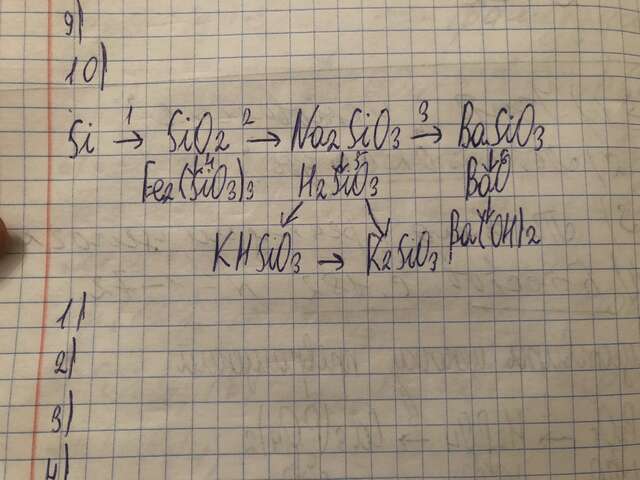 9)
10)
1 2 3
Si → SiO2 → Na2SiO3 → BaSiO3
↓4 ↓5 ↓6
Fe2(SiO3)3 H2SiO3 BaO
↙ ↘ ↓
KHSiO3 → K2SiO3 Ba(OH)2
1)
2)
3)
4)